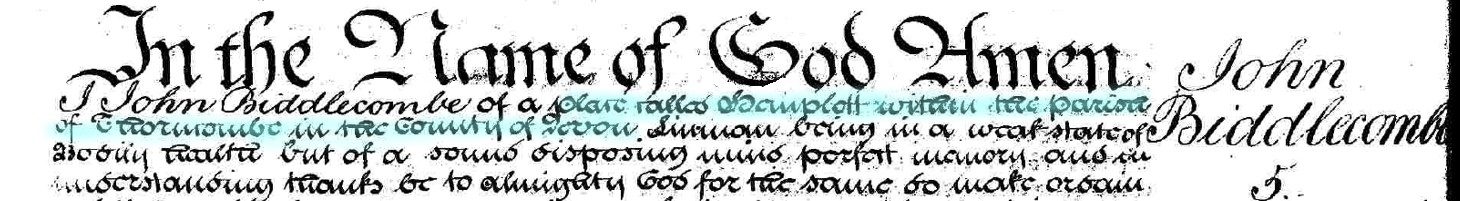 In the Name of God Amen
John
Biddlecombe
5.
I John Biddlecombe of a place called within the Parish
of Thorncombe in the County of Devon being in a weak state of
Bodily health but of a sound disposing mind perfect memory and in
understanding thanks be to almighty God for the same do make ordain